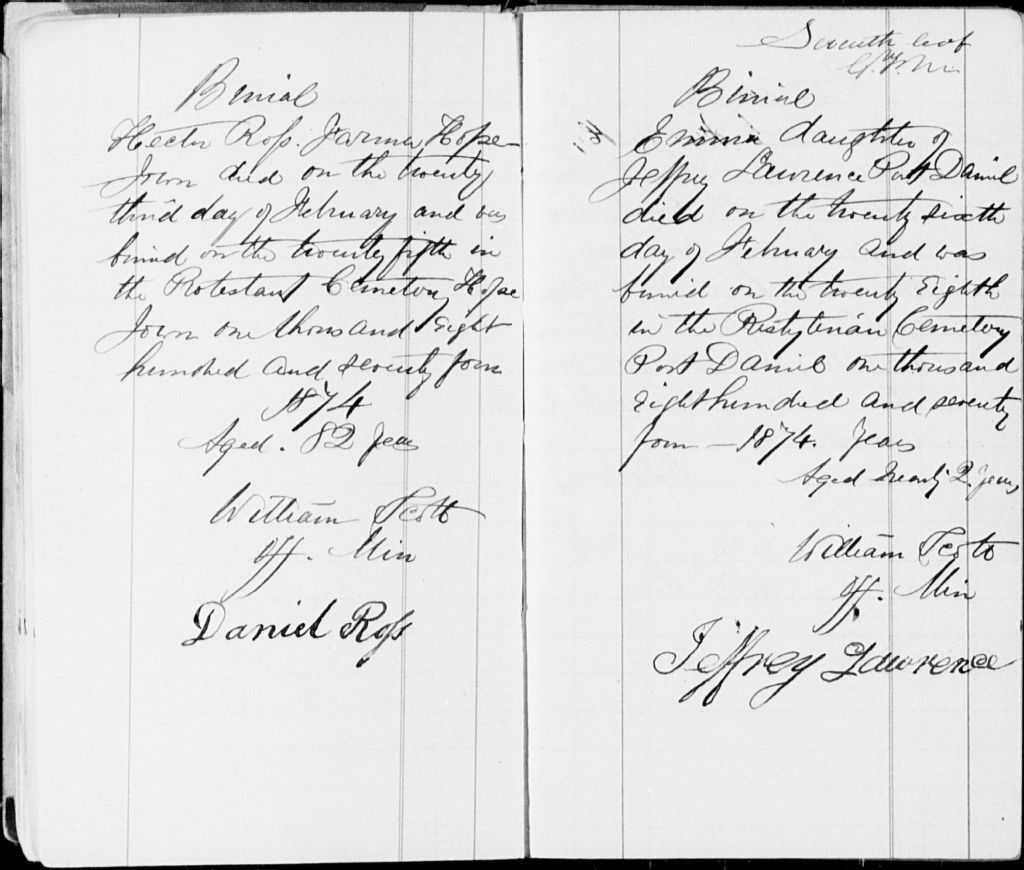 Burial
Hector Ross. Farmer Hope
Town died on the twenty
third day of February and was
buried on the twenty fifth in
the Protestant Cemetery Hope
Town one thousand Eight
hundred and seventy four
1874
Aged. 82 years
William Scott
Off. Min
Daniel Ross
Seventh leaf
Burial
Emma daughter of
Jeffrey Lawrence Port Daniel
died on the twenty sixth
day of February and was
buried on the twenty Eighth
in the Presbyterian Cemetery
Port Daniel one thousand
Eight hundred and seventy
four — 1874. years
Aged nearly 2 years
William Scott
Off. Min
Jeffrey Lawrence